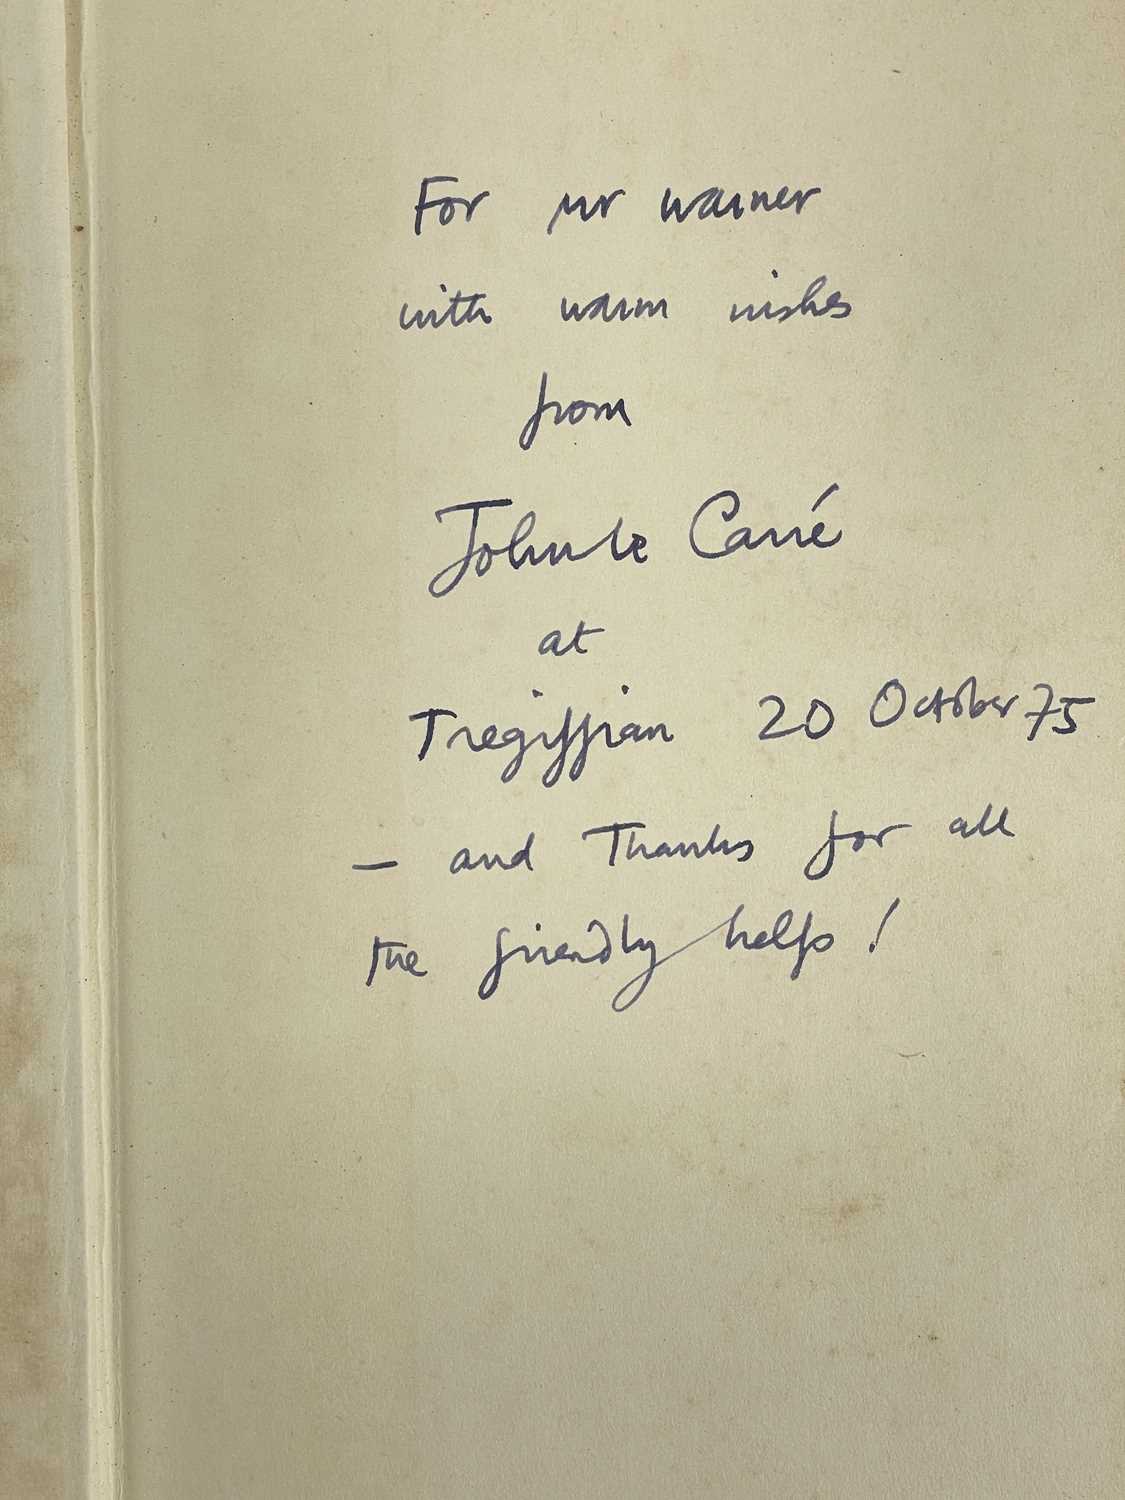 For Mr Warner
with warm wishes
from
John le Carré
at
Tregiffian 20 October 75
— and Thanks for all
the friendly help!